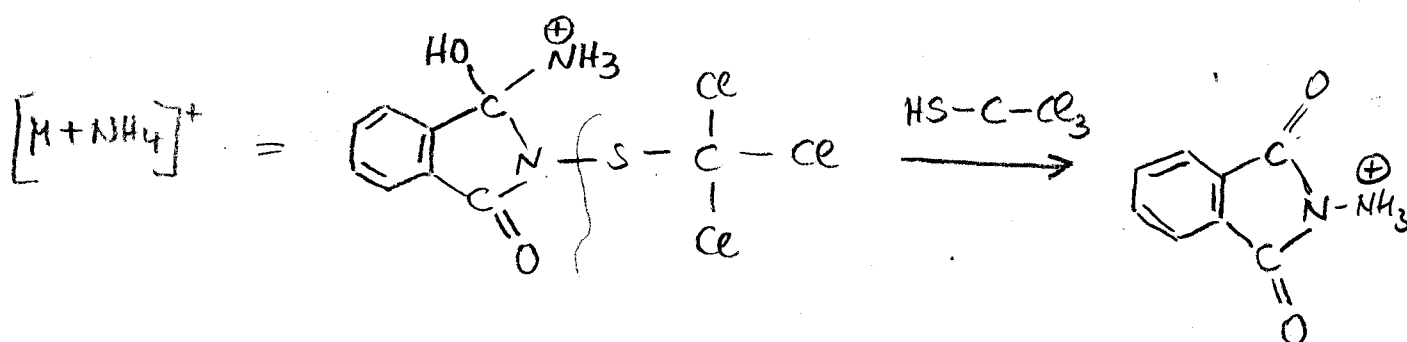 [M+NH4]⁺ = HO C ⊕ NH3 N C O S C Cl Cl Cl
HS-C-Cl3
O C N-⊕NH3 C O